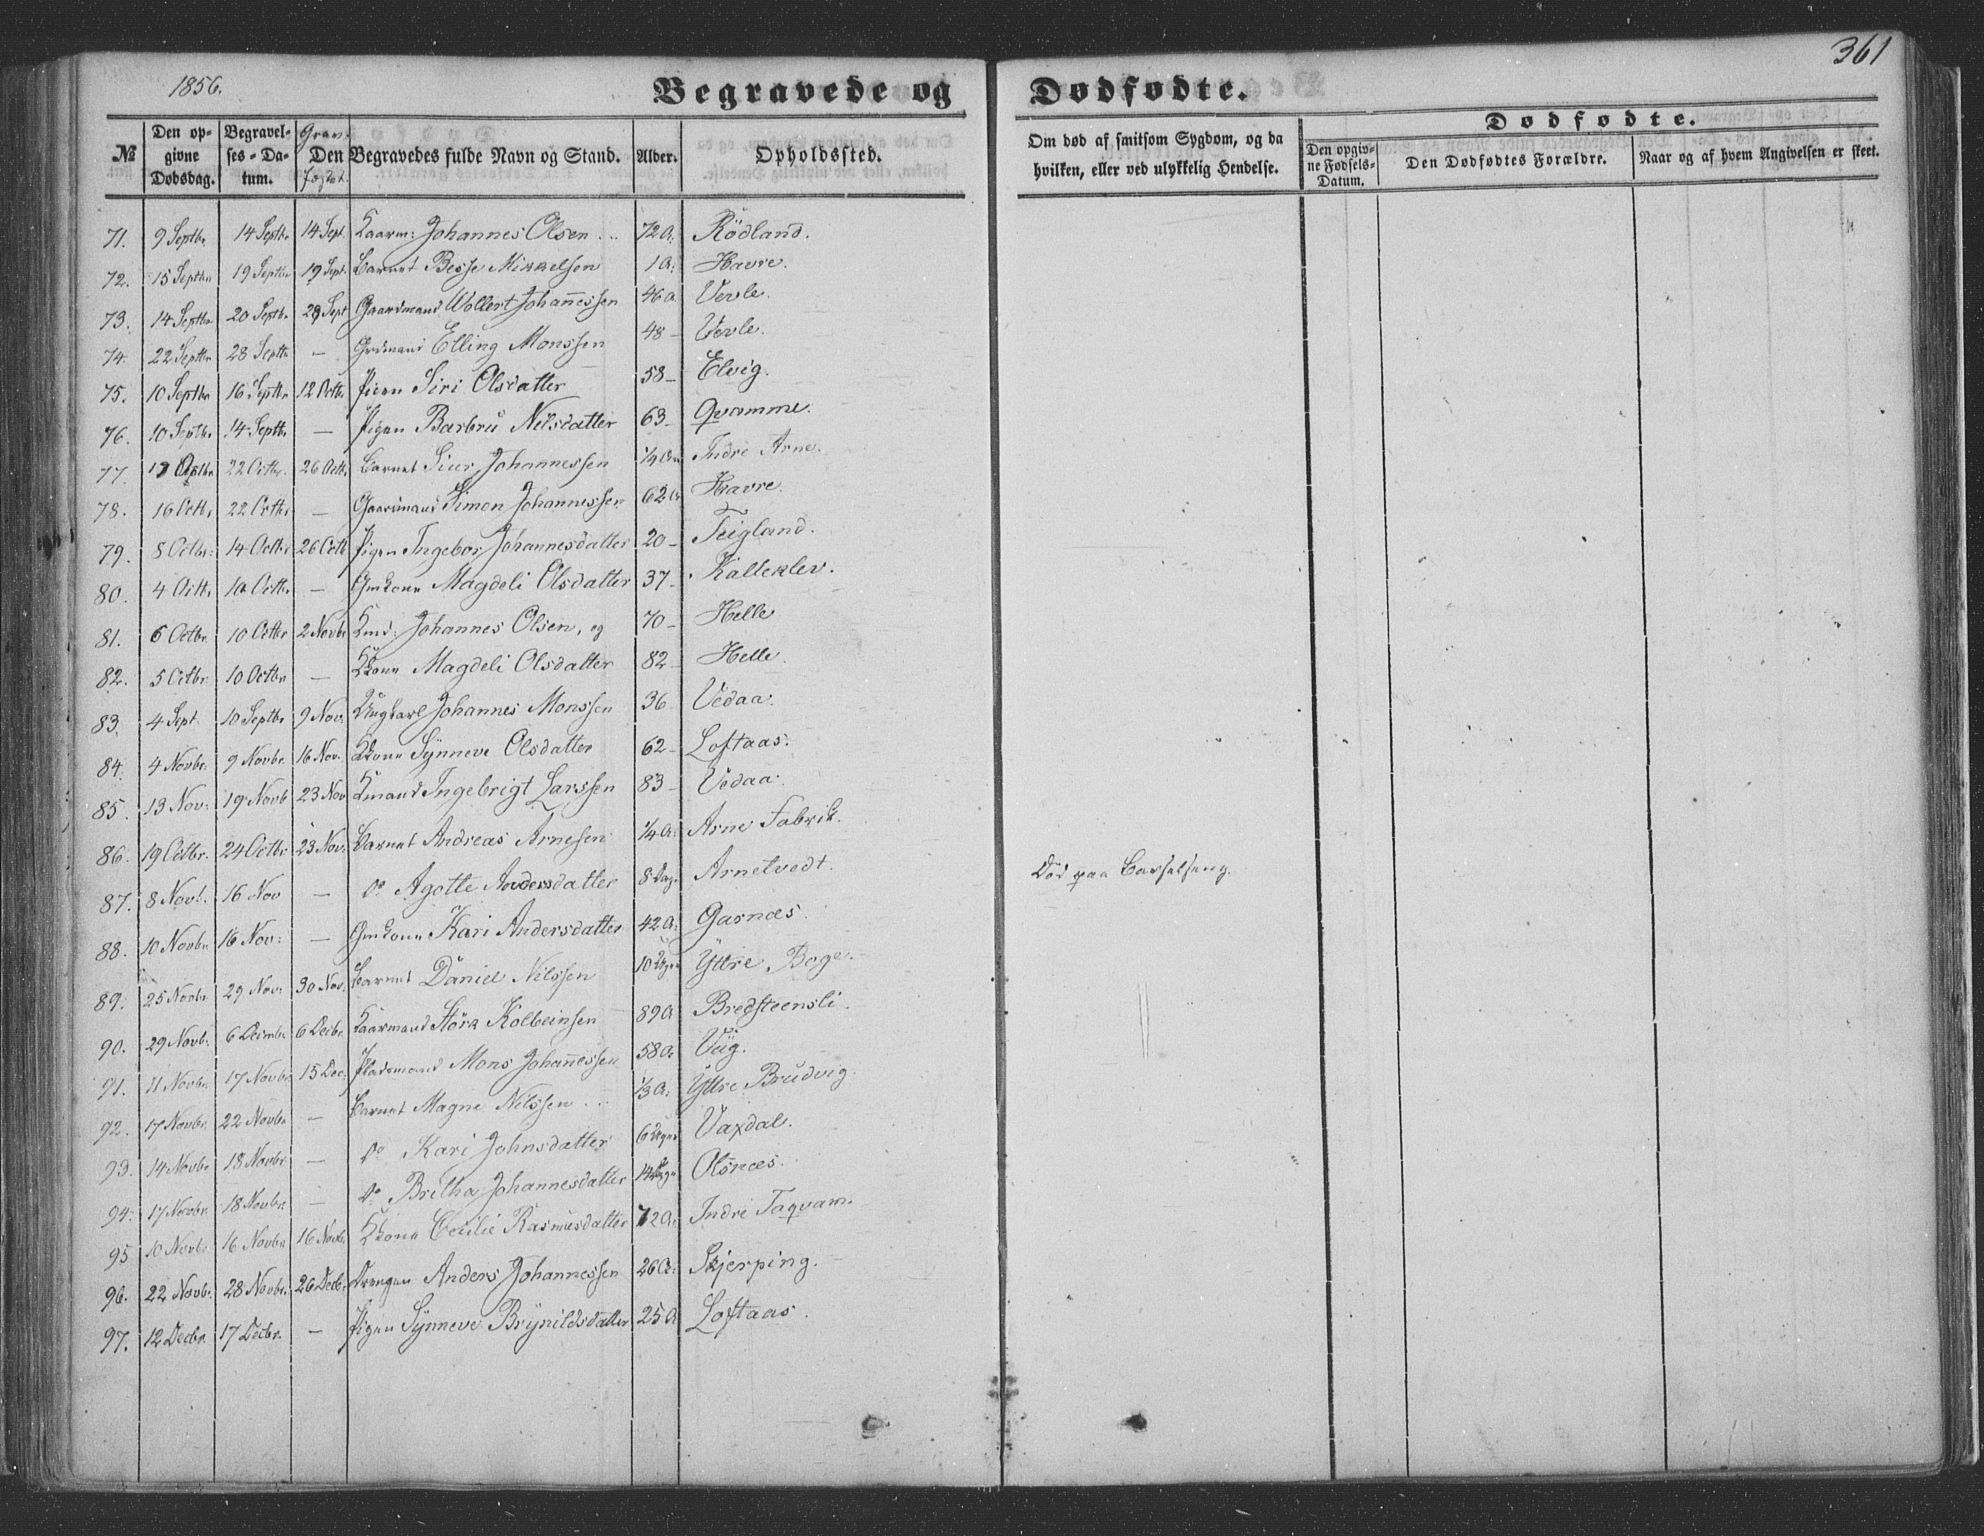 1856.
361
Begravede og Dødfødte.
№ Den opgivne Dødsdag. Begravelses-Datum. Den Begravedes fulde Navn og Stand. Alder. Opholdssted. Om død af smitsom Sygdom, og da hvilken, eller ved ulykkelig Hendelse. Dødfødte. Den opgivne Fødsels-Datum. Den Dødfødtes Forældre. Naar og af hvem Angivelsen er skeet.
71. 9 Septbr 14 Septbr 14 Sept. Kaarm: Johannes Olsen 72 A. Rödland.
72. 15 Septbr 19 Septbr 19 Sept. Barnet Besse Mikkelsen 1 A. Havre.
73. 14 Septbr 20 Septbr 28 Sept Gaardmand Wollert Johannessen 46 A Vevle.
74. 22 Septbr 28 Septbr — Grdmand Elling Monssen 48 – Vevle.
75. 10 Septbr 16 Septbr 12 Octbr Pigen Siri Olsdatter 58 – Elvig.
76. 10 Septbr 14 Septbr — Pigen Barbru Nilsdatter 63 – Qvamme.
77. Octbr 22 Octbr. 26 Octb. Barnet Siur Johannessen Indre Arne.
78. 16 Octb. 22 Octb. — Gaardmand Simon Johannessen 62 A Havre.
79. 8 Octbr: 14 Octbr 26 Octb Pigen Ingebor Johannesdatter 20 – Teigland.
80. 4 Octb. 10 Octbr — Gmkone Magdeli Olsdatter 37 – Kalleklev.
81. 6 Octbr. 10 Octbr 2 Novbr Kmd: Johannes Olsen, og 70 – Helle
82. 5 Octbr. 10 Octbr — Kkone Magdeli Olsdatter 82 – Helle.
83. 4 Sept. 10 Septbr 9 Nov. Ungkarl Johannes Monssen 36 Vedaa.
84. 4 Novbr. 9 Novbr. 16 Nov. Kkone Synneve Olsdatter 62 – Loftaas.
85. 13 Nov: 19 Novb 23 Nov Kmand Ingebrigt Larssen 83 – Vedaa.
86. 19 Octbr. 24 Octbr 23 Nov: Barnet Andreas Arnesen 1/4 A. Arne Fabrik.
87. 8 Nov. 16 Nov — do Agotte Andersdatter 8 Dage Arnetvedt.
88. 10 Novbr 16 Nov: — Gmkone Kari Andersdatter 42 A. Garnæs. Död paa Barselseng.
89. 25 Novbr 29 Nov: 30 Nov. Barnet Daniel Nilssen 10 Ugr Yttre Boge.
90. 29 Novb. 6 Decmbr 6 Decbr. Kaarmand Störk Kolbeinsen 89 A Bredsteensli.
91. 11 Novbr. 17 Novbr 15 Dec. Pladsmand Mons Johannessen 58 A. Vaag.
92. 17 Novbr. 22 Novbr — Barnet Magne Nilssen 1/3 A. Yttre Brudvig.
93. 14 Novbr 18 Novbr — do Kari Johnsdatter 6 Uger Vaxdal.
94. 17 Novbr. 18 Novbr. — do Britha Johannesdatter 14 Dage Olsnæs.
95 10 Novbr 16 Novbr 16 Novbr. Kkone Cecilie Rasmusdatter 72 A. Indre Taqvam.
96. 22 Novb. 28 Novbr. 26 Decb. Drengen Anders Johannessen 26 A. Skjerping.
97. 12 Decbr. 17 Decbr. — Pigen Synneve Brynildsdatter 25 A Loftaas.